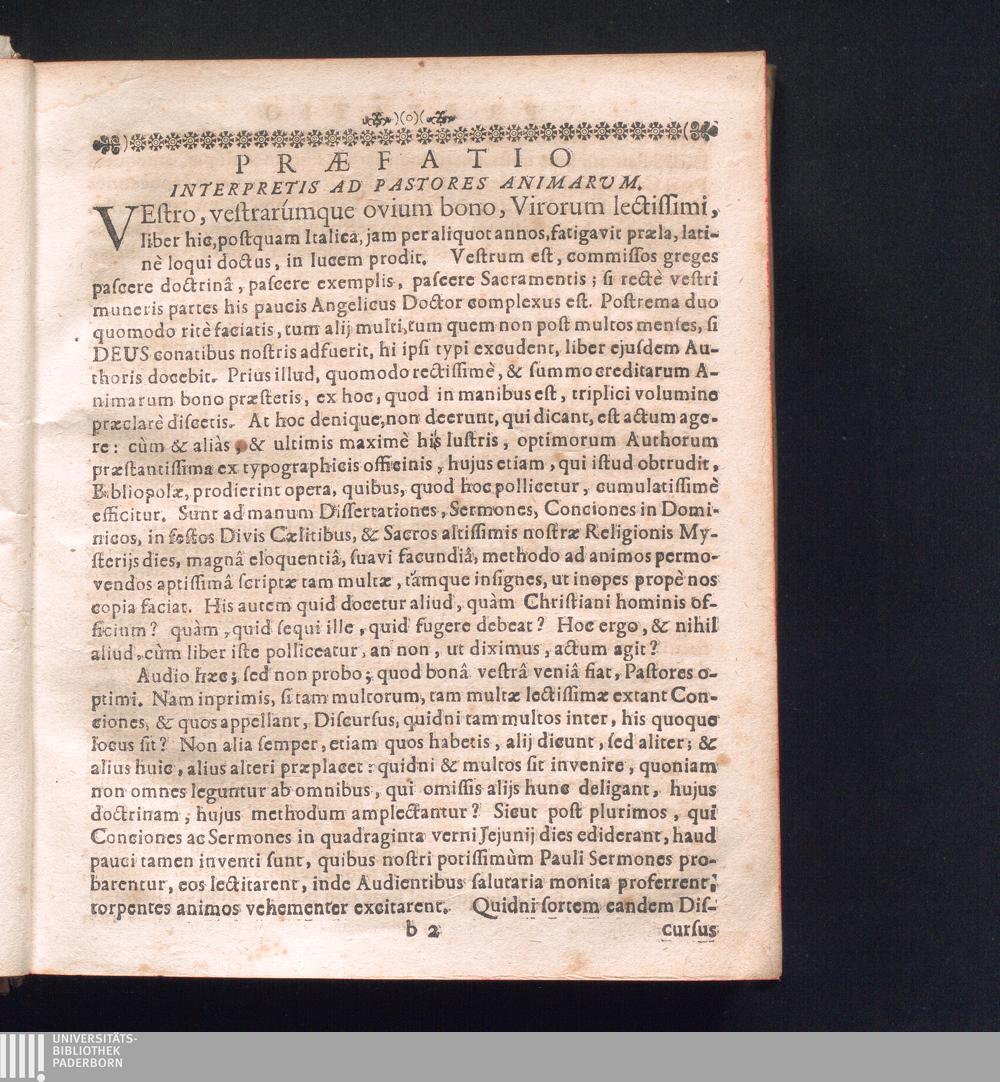 PRÆFATIO
INTERPRETIS AD PASTORES ANIMARVM.
VEſtro, veſtrarúmque ovium bono, Virorum lectiſſimi,
liber hic, poſtquam Italica, jam per aliquot annos, fatigavit præla, lati-
nè loqui doctus, in lucem prodit. Veſtrum eſt, commiſſos greges
paſcere doctrinâ, paſcere exemplis, paſcere Sacramentis; ſi rectè veſtri
muneris partes his paucis Angelicus Doctor complexus eſt. Poſtrema duo
quomodo ritè faciatis, tum alij multi, tum quem non poſt multos menſes, ſi
DEUS conatibus noſtris adfuerit, hi ipſi typi excudent, liber ejuſdem Au-
thoris docebit. Prius illud, quomodo rectiſſimè, & ſummo creditarum A-
nimarum bono præſtetis, ex hoc, quod in manibus eſt, triplici volumine
præclarè diſcetis. At hoc denique, non deerunt, qui dicant, eſt actum age-
re: cùm & aliàs, & ultimis maximè his luſtris, optimorum Authorum
præſtantiſſima ex typographicis officinis, hujus etiam, qui iſtud obtrudit,
Bibliopolæ, prodierint opera, quibus, quod hoc pollicetur, cumulatiſſimè
efficitur. Sunt ad manum Diſſertationes, Sermones, Conciones in Domi-
nicos, in feſtos Divis Cælitibus, & Sacros altiſſimis noſtræ Religionis My-
ſterijs dies, magnâ eloquentiâ, ſuavi facundiâ, methodo ad animos permo-
vendos aptiſſimâ ſcriptæ tam multæ, támque inſignes, ut inopes propè nos
copia faciat. His autem quid docetur aliud, quàm Chriſtiani hominis of-
ficium? quàm, quid ſequi ille, quid fugere debeat? Hoc ergo, & nihil
aliud, cùm liber iſte polliceatur, an non, ut diximus, actum agit?
Audio hæc; ſed non probo; quod bonâ veſtrâ veniâ fiat, Paſtores o-
ptimi. Nam inprimis, ſi tam multorum, tam multæ lectiſſimæ extant Con-
ciones, & quos appellant, Diſcurſus, quidni tam multos inter, his quoque
locus ſit? Non alia ſemper, etiam quos habetis, alij dicunt, ſed aliter; &
alius huic, alius alteri præplacet: quidni & multos ſit invenire, quoniam
non omnes leguntur ab omnibus, qui omiſſis alijs hunc deligant, hujus
doctrinam, hujus methodum amplectantur? Sicut poſt plurimos, qui
Conciones ac Sermones in quadraginta verni Jejunij dies ediderant, haud
pauci tamen inventi ſunt, quibus noſtri potiſſimùm Pauli Sermones pro-
barentur, eos lectitarent, inde Audientibus ſalutaria monita proferrent,
torpentes animos vehementer excitarent. Quidni ſortem eandem Diſ-
b 2 curſus
UNIVERSITÄTS-
BIBLIOTHEK
PADERBORN